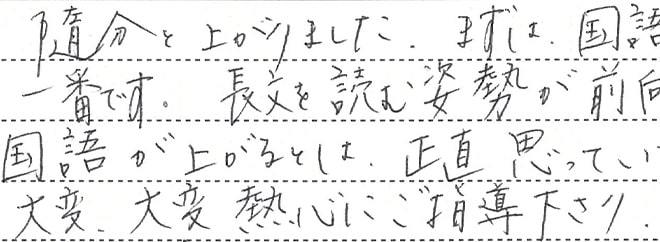 随分と上がりました。まずは、国語
一番です。長文を読む姿勢が前向
国語が上がるとは、正直思ってい
大変、大変熱心にご指導下さり、